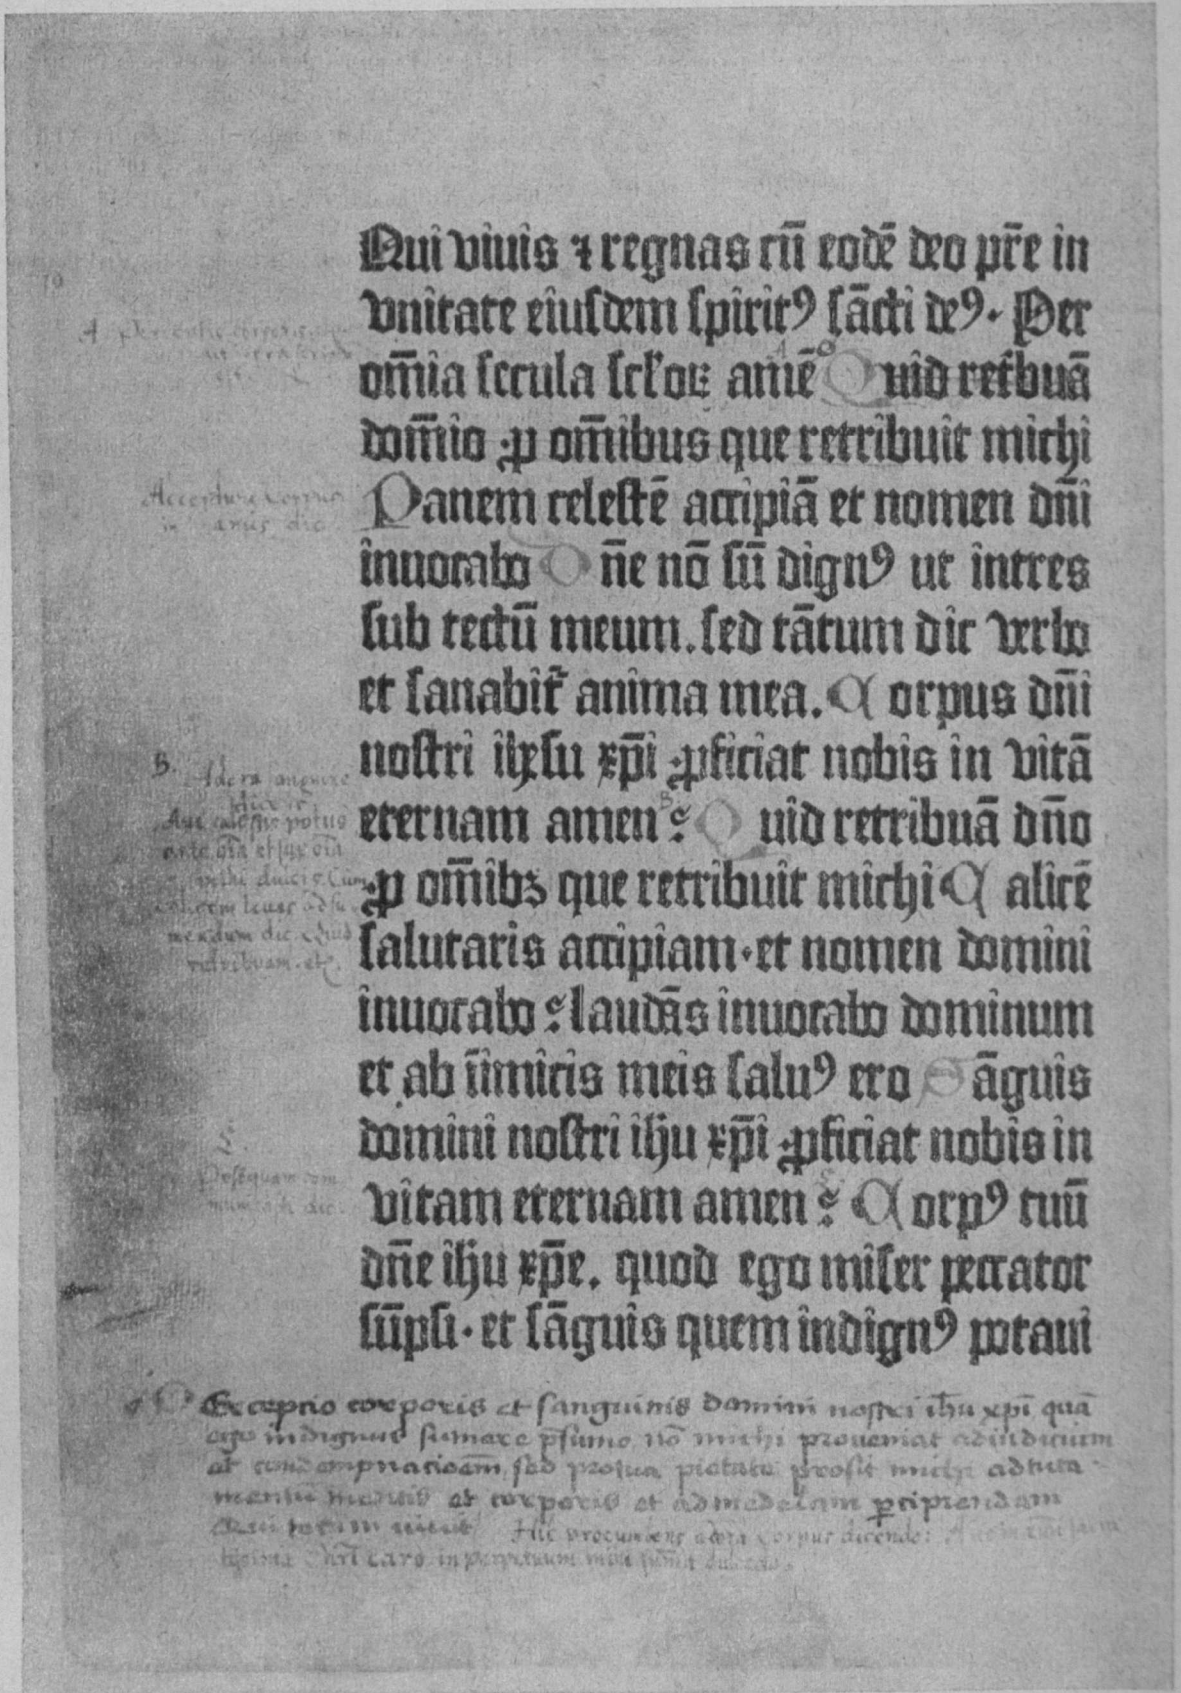 Qui viuis ⁊ regnas cū eodē deo pr̄e in
vnitate eiusdem spiritꝰ sācti deꝰ. Per
om̄ia secula sclʼoꝝ amē Quid ret̾buā
dom̄io ꝓ om̄ibus que retribuit michi
Panem celestē accipiā et nomen dn̄i
inuocabo Dn̄e nō sū dignꝰ ut intres
sub tectū meum. sed tātum dic verbo
et sanabit̾ anima mea. Corpus dn̄i
nostri ihesu xp̄i ꝓficiat nobis in vitā
eternam amen. Quid retribuā dn̄o
ꝓ om̄ibꝫ que retribuit michi Calicē
salutaris accipiam. et nomen domini
inuocabo laudās inuocabo dominum
et ab īimicis meis saluꝰ ero Sāguis
domini nostri ihu xp̄i ꝓficiat nobis in
vitam eternam amen. Corpꝰ tuū
dn̄e ihu xp̄e. quod ego miser peccator
sūpsi. et sāguis quem indignꝰ potaui
A
Accepture corpus
in manus dic
B.
Adora sanguinē
dicere
Aue celestis potus
retribuam. etc.
Postquam com
Perceptio corporis et sanguinis domini nostri ih̄u xp̄i quā
ego indignus sumere p̄sumo nō michi proueniat ad iudicium
et condempnacioēm, sed pro tua pietate prosit michi ad tuta-
mentū mentis et corporis et ad medelam ꝑcipiendam
Hic procumbens adora corpus dicendo:
caro in perpetuum